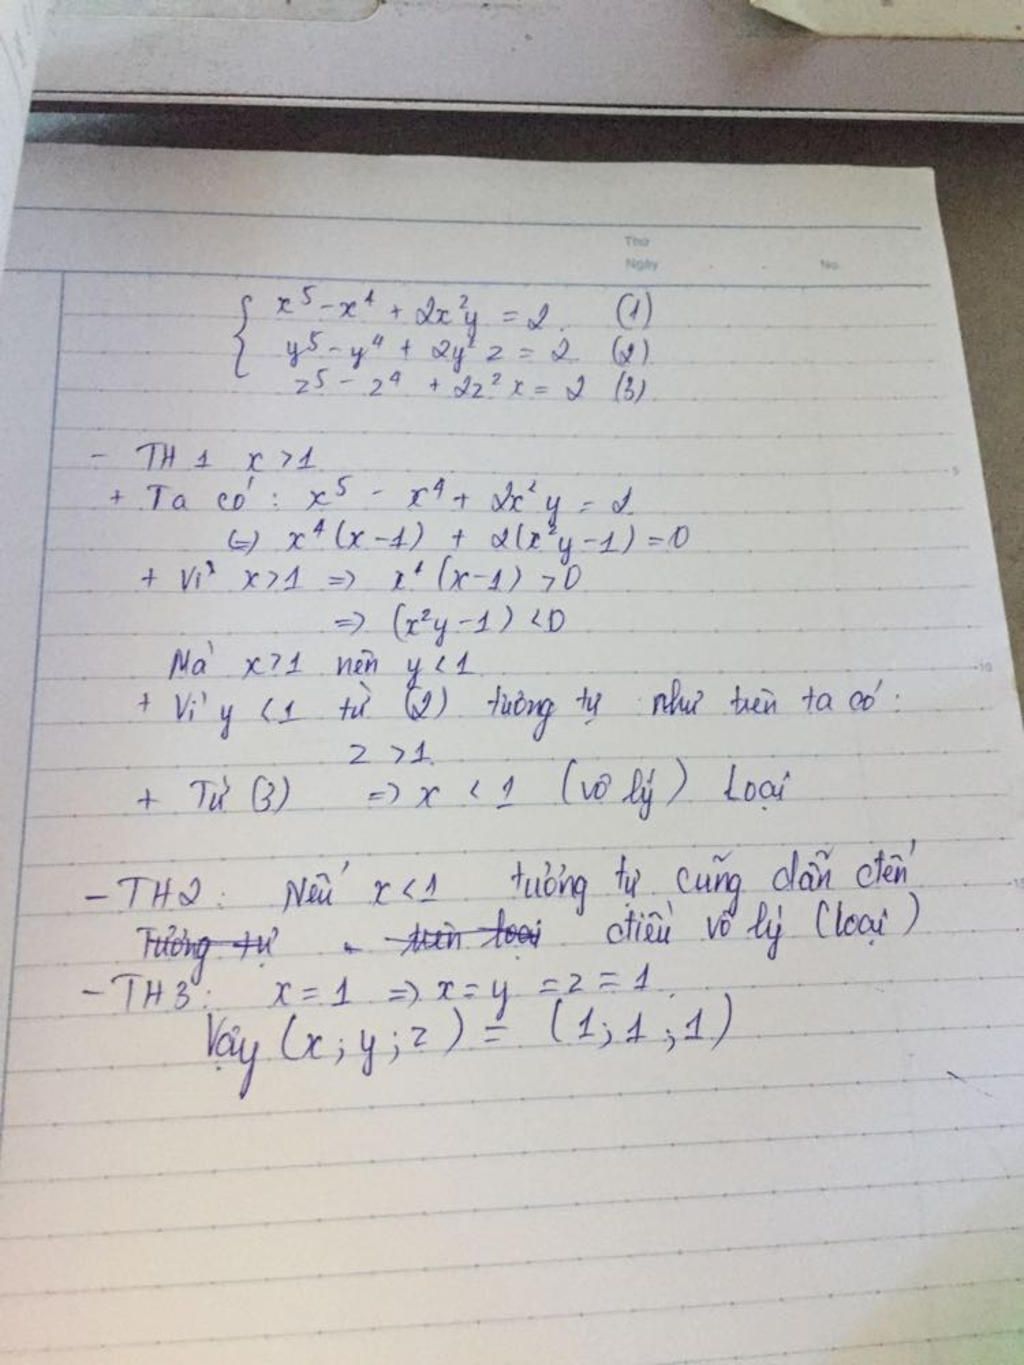 Thứ
Ngày
No.
x⁵ - x⁴ + 2x²y = 2. (1)
y⁵ - y⁴ + 2y²z = 2 (2)
z⁵ - z⁴ + 2z²x = 2 (3)
5
- TH 1 x > 1
+ Ta có : x⁵ - x⁴ + 2x²y = 2
(=) x⁴(x - 1) + 2(x²y - 1) = 0
+ Vì x > 1 => x⁴(x - 1) > 0
=> (x²y - 1) < 0
Mà x > 1 nên y < 1
10
+ Vì y < 1 từ (2) tương tự như trên ta có :
z > 1.
+ Từ (3) => x < 1 (vô lý) Loại
- TH2 : Nếu x < 1 tương tự cũng dẫn đến
15
Tương tự trên loại điều vô lý (loại)
- TH3 : x = 1 => x = y = z = 1.
Vậy (x ; y ; z) = (1 ; 1 ; 1)